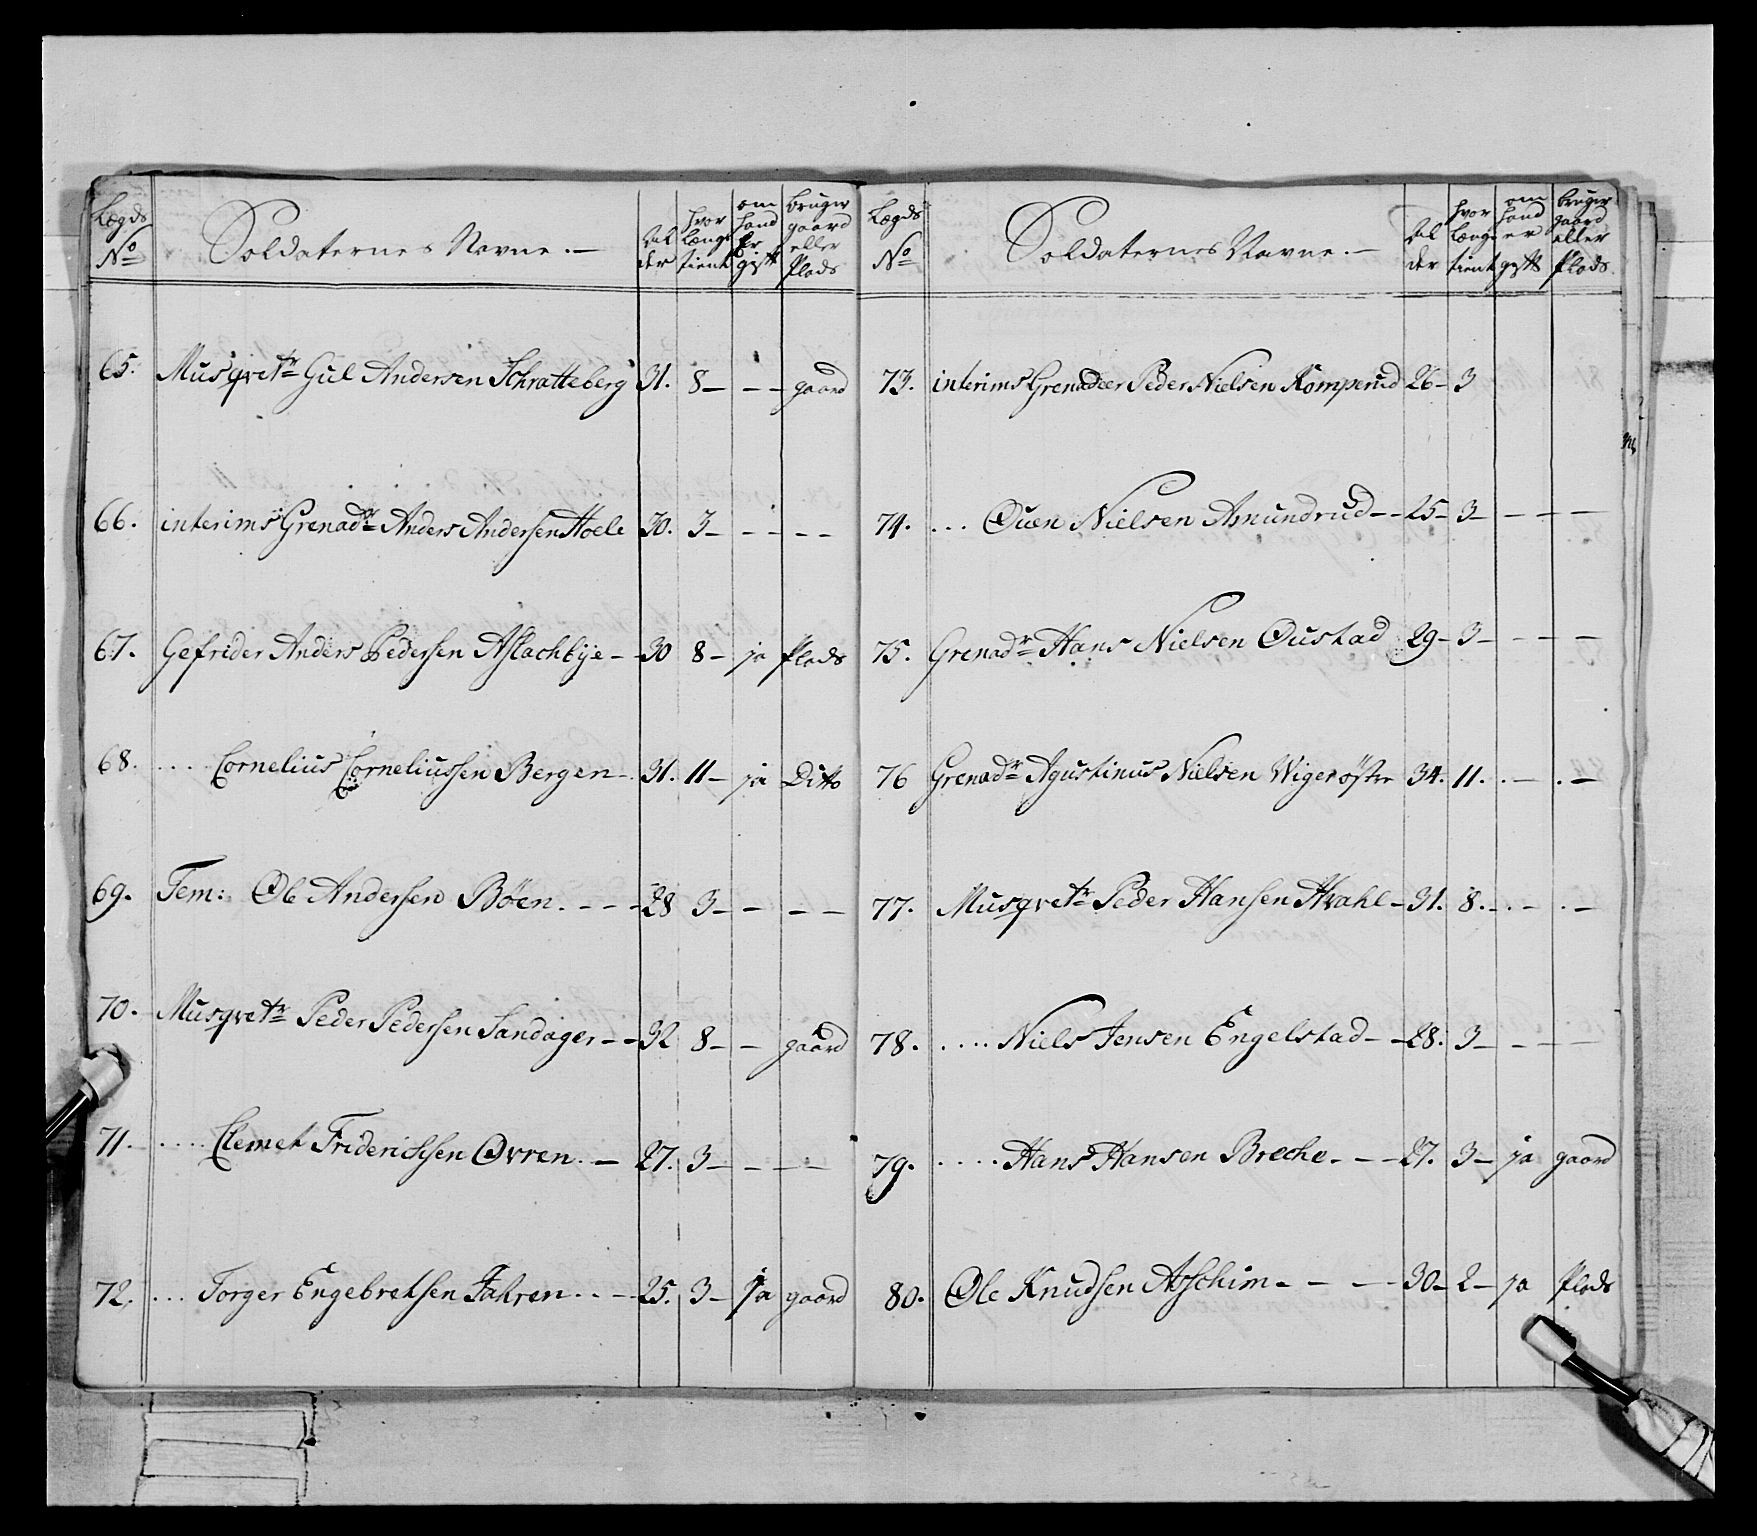 Lægds No Soldaternes Navne. Alder hvor længe tient om hand Er gift bruger gaard eller Plads
65. Musqvetr Gul Andersen Schratteberg 31. 8 – – – gaard
66. interims Grenadr Anders Andersen Hoele 30. 3 – – – – –
67. Gefrider Anders Pedersen Aslachbye – 30 8 – ja Plads
68. .... Cornelius Corneliussen Bergen – 31. 11 – ja Ditto
69. Tem: Ole Andersen Böen. – – – 28 3 – – – –
70. Musqvetr Peder Pedersen Sandager – – 32 8 – – gaard
71. .... Clemet Friderichsen Øvren. – 27. 3 – – – –
72. ... Torger Engebretsen Fahren. . – – 25. 3 – ja gaard
Lægds No Soldaternes Navne. – Alder hvor længe tient om hand er gift bruger gaard eller Plads.
73. interims Grenadeer Peder Nielsen Komperud 26 – 3
74. ... Ouen Nielsen Amundrud – – 25 – 3 – – – –
75. Grenadr Hans Nielsen Oustad 29 – 3 – – – –
76 Grenadr Agustinus Nielsen Wiger östre 34. 11. . – . –
77. Musqvetr Peder Hansen Hvahl – 31. 8. – . – . –
78. .... Niels Jensen Engelstad – – 28. 3 – – – –
79. .... Hans Hansen Breche. – – – 27. 3 – ja gaard
80. Ole Knudsen Aschim – – – – 30 – 2 – ja Plads